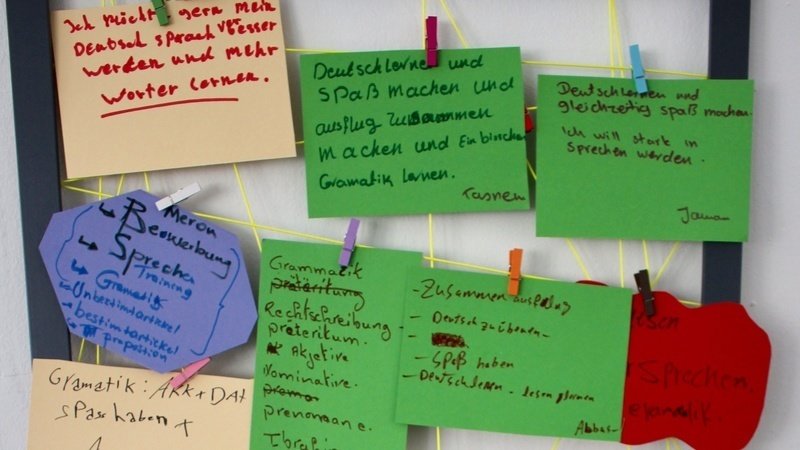 Ich möchte gern mein
Deutsch sprach ver besser
werden und mehr
worter lernen.
Deutschlernen und
Spaß machen und
ausflug zusammen
machen und Ein bischen
Gramatik lernen.
Tasnem
Deutschlernen und
gleichzeitig spaß machen.
Ich will stark in
sprechen werden.
Meron
Bewerbung
Sprechen
Training
Gramatik
Unbestimtartickel
bestimtartickel
preposition
Grammatik
Rechtschreibung
präteritum.
Akjetive
Nominative.
prenomane.
Ibrahi
-Zusammen ausflug
- Deutsch zu übenen-
- Spaß haben
- Deutschlernen - lesen
Abbas-
lesen
Sprechen.
Gramatik: AKK + DAT
spass haben +